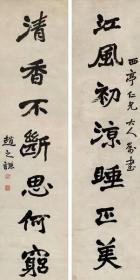 西亭仁兄大人屬書
江風初涼睡正美
清香不斷思何窮
趙之謙